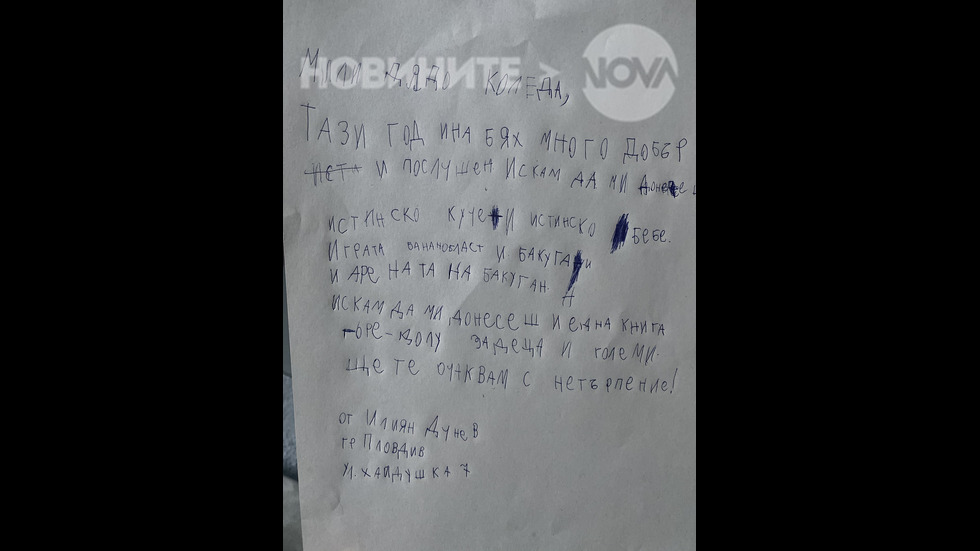 НОВИНИТЕ > NOVA
Мили дядо Коледа,
Тази година бях много добър
и послушен искам да ми донесеш
истинско куче и истинско бебе.
Играта бананобласт и бакугани
и арената на бакуган.
искам да ми донесеш и една книга
горе-долу за деца и големи.
ще те очаквам с нетърпение!
от Илиян Дунев
гр Пловдив
ул. хайдушка 7